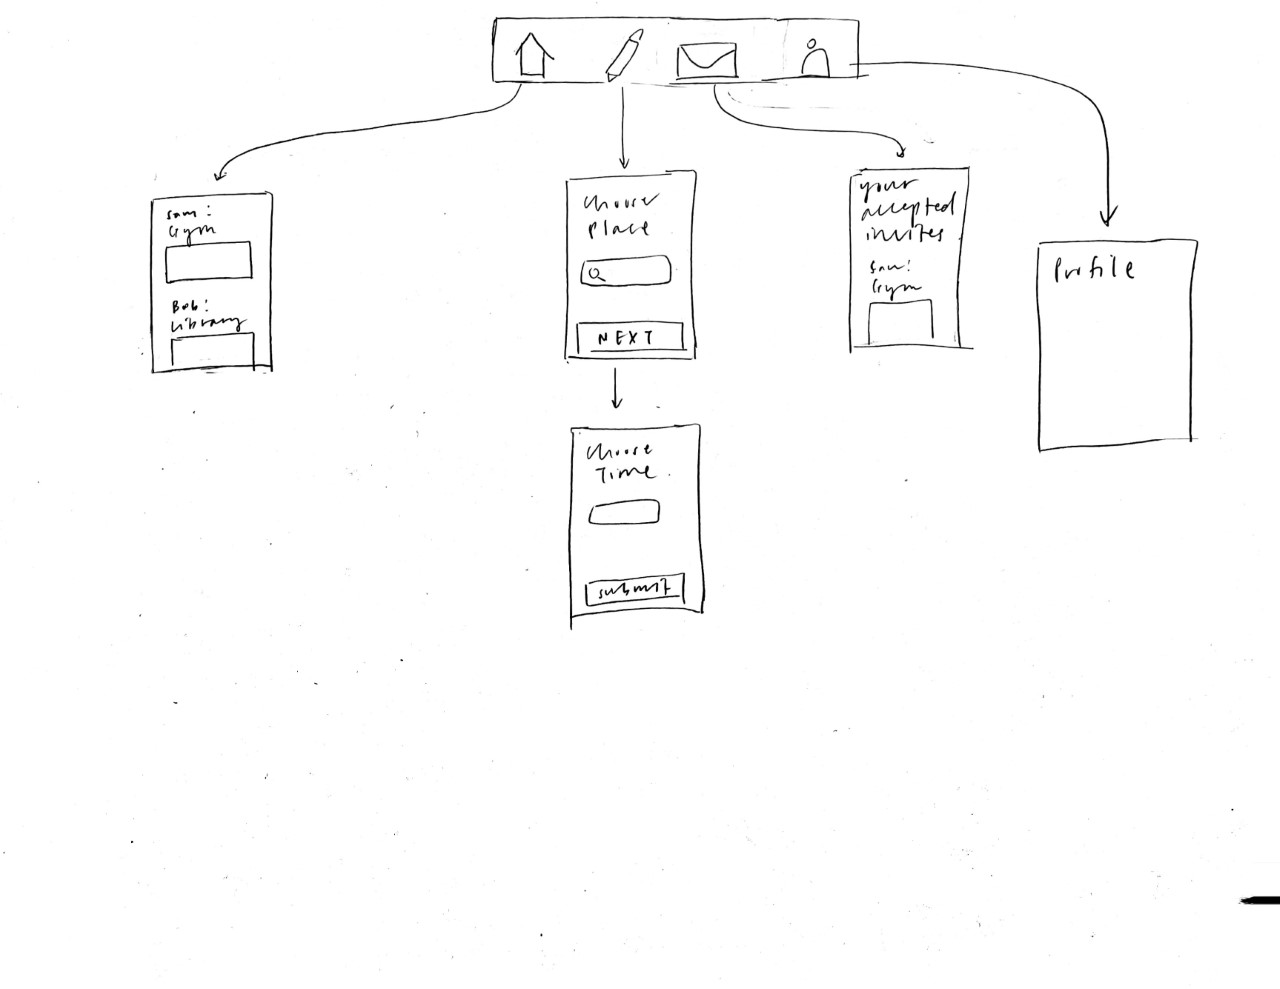 Sam:
Gym
Bob:
Library
Choose
Place
NEXT
Choose
Time
submit
your
accepted
invites
Sam:
Gym
Profile